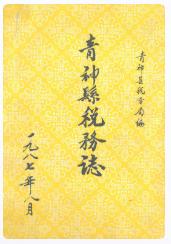 青神县税务局编
青神縣税務誌
一九八七年八月